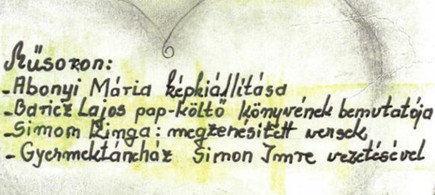 Műsoron:
- Abonyi Mária képkiállítása
- Baricz Lajos pap-költő könyvének bemutatója
- Simon Kinga: megzenésített versek
- Gyermektáncház Simon Imre vezetésével